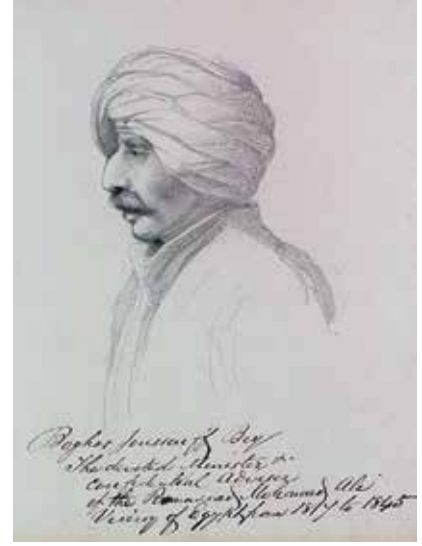 Boghos Joussouff Bey
The devoted Minister &
confidential Adviser
of the Renowned Mohamed Ali
Viceroy of Egypt from 1817 to 1845